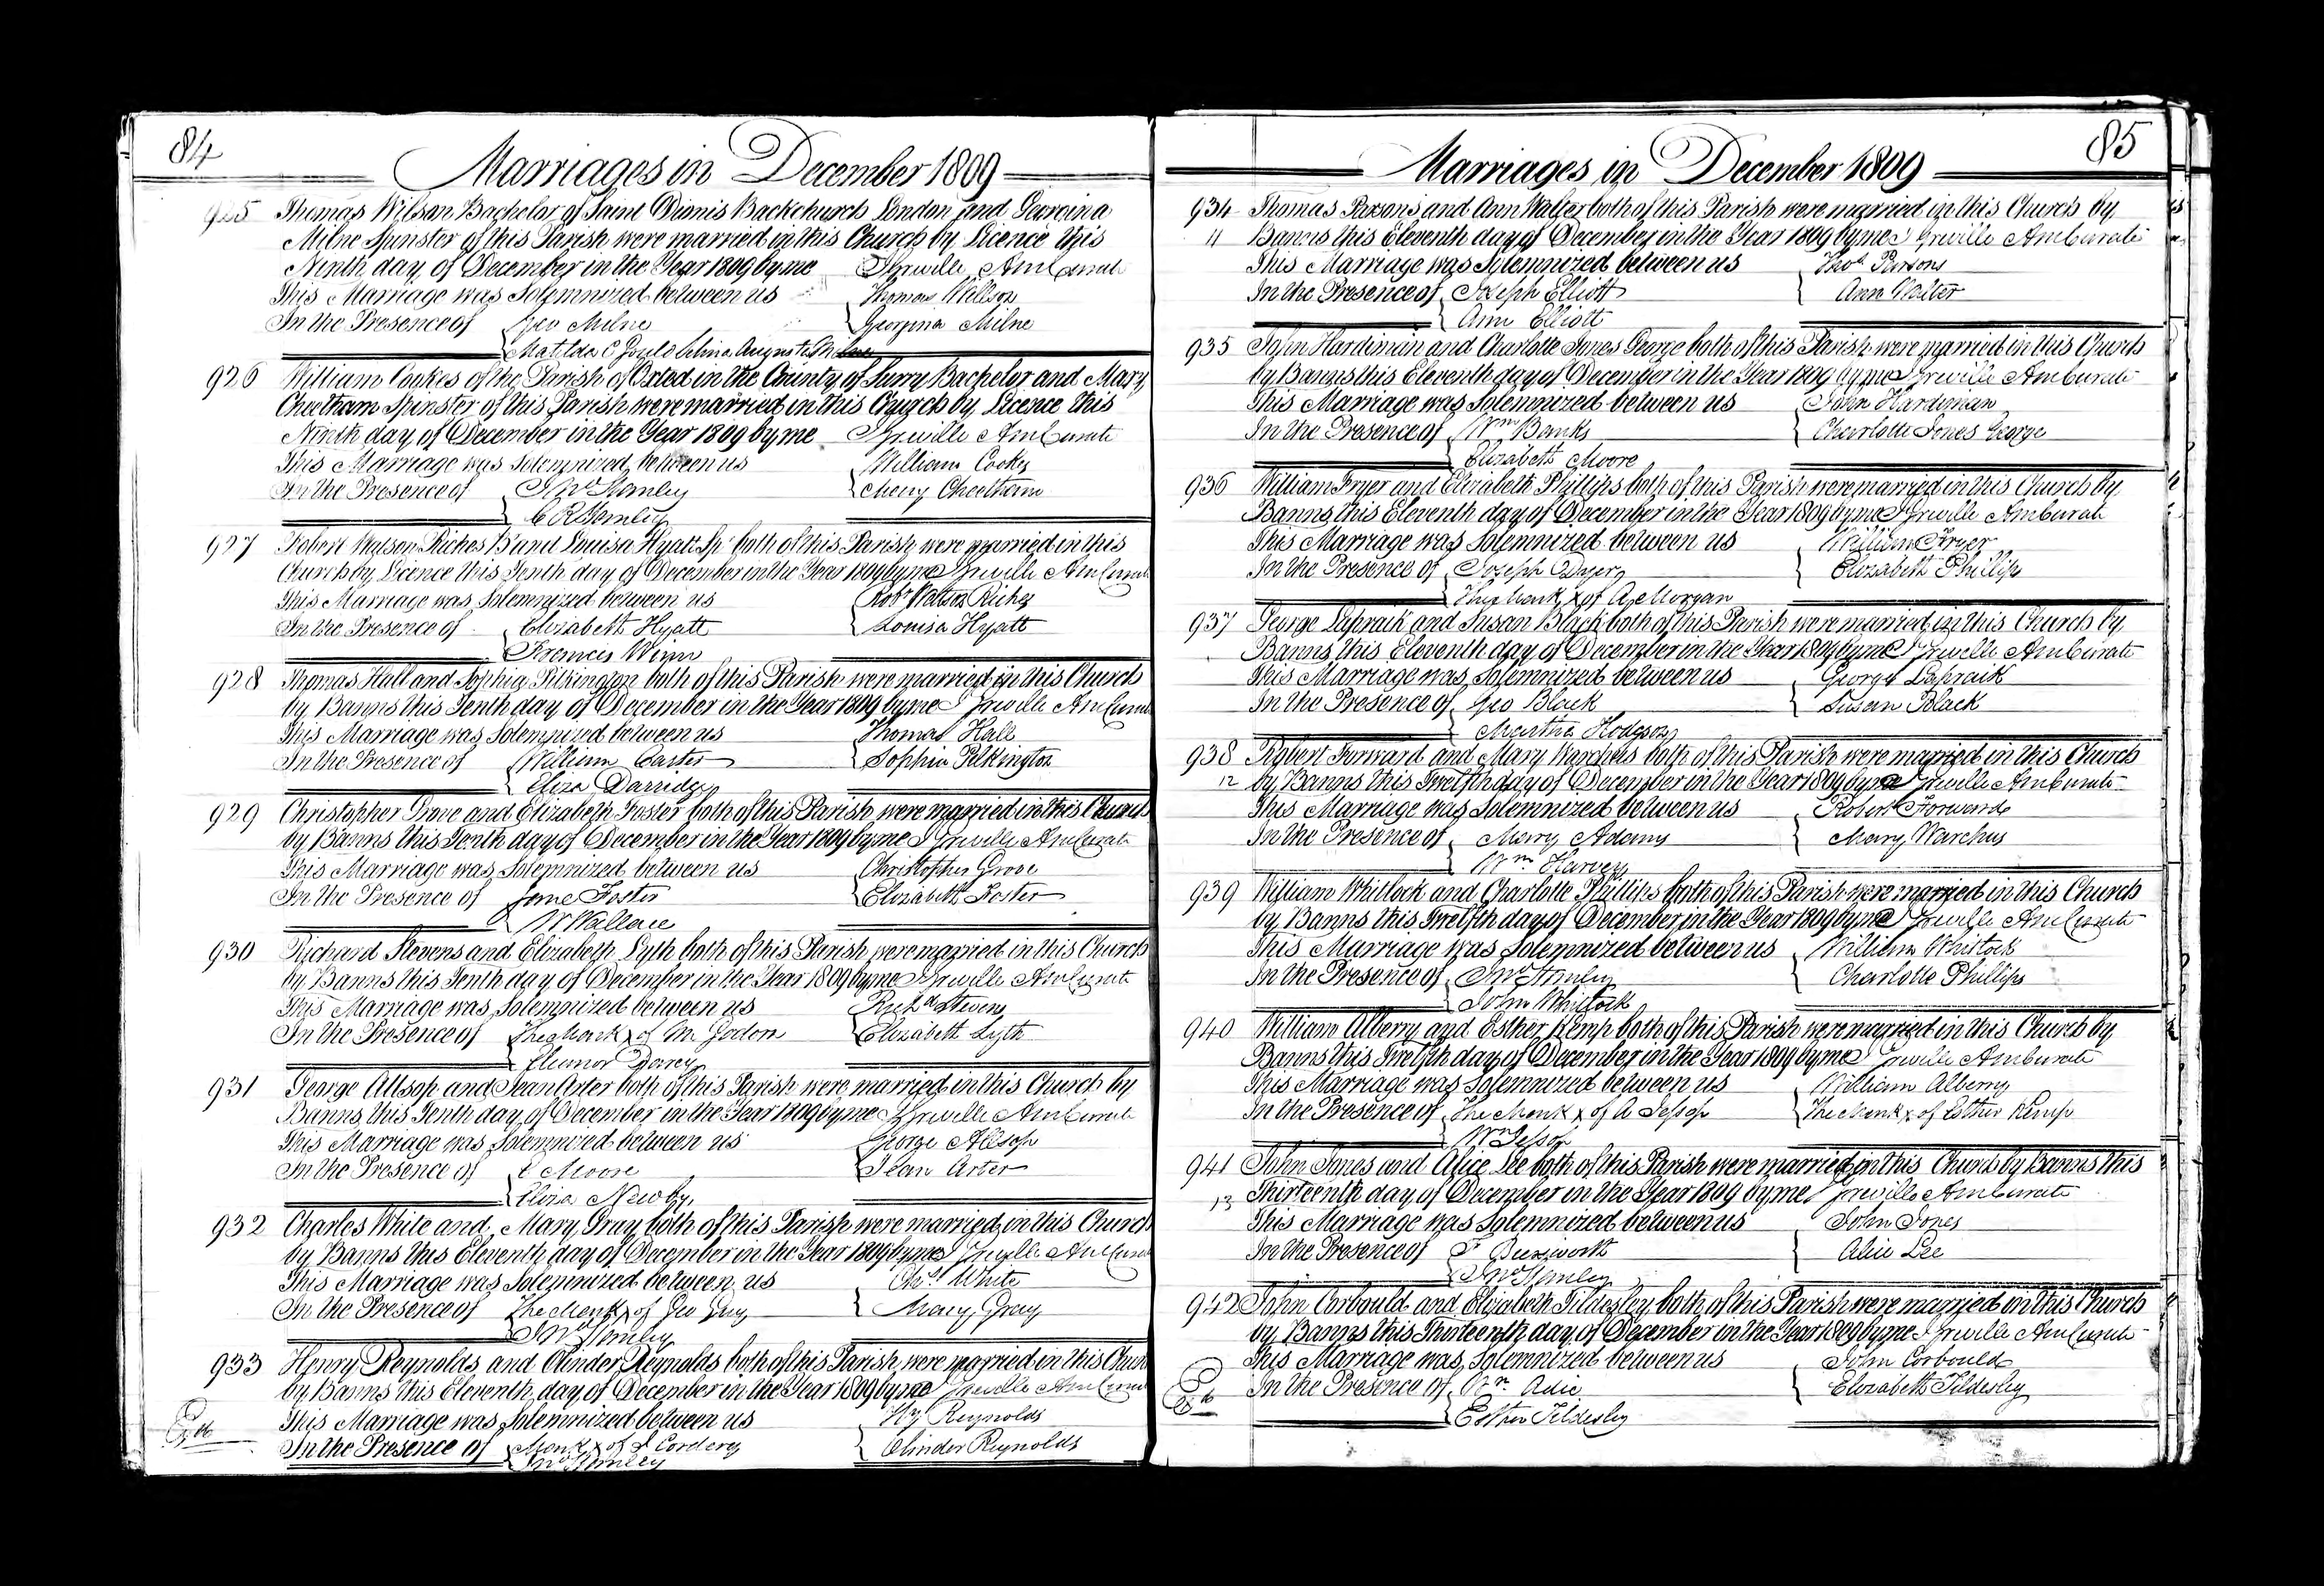 84
Marriages in December 1809
925 Thomas Wilson Bachelor of Saint Dionis Backchurch London and Georgina
Milne Spinster of this Parish were married in this Church by Licence this
Ninth day of December in the Year 1809 by me J Greville A M Curate
This Marriage was Solemnized between us Thomas Willson
In the Presence of Geo Milne Georgina Milne
Matilda C Gould Selina Augusta Milne
926 William Cookes of the Parish of Oxted in the County of Surry Bachelor and Mary
Cheetham Spinster of this Parish were married in this Church by Licence this
Ninth day of December in the Year 1809 by me J Greville A M Curate
This Marriage was Solemnized between us William Cookes
In the Presence of Jno Stanley Mary Cheetham
C R Stanley
927 Robert Watson Riches B and Louisa Hyatt Sp both of this Parish were married in this
Church by Licence this Tenth day of December in the Year 1809 by me J Greville A M Curate
This Marriage was Solemnized between us Robt Watson Riches
In the Presence of Elizabeth Hyatt Louisa Hyatt
Francis Winn
928 Thomas Hall and Sophia Pilkington both of this Parish were married in this Church
by Banns this Tenth day of December in the Year 1809 by me J Greville A M Curate
This Marriage was Solemnized between us Thomas Hall
In the Presence of William Carter Sophia Pilkington
Eliza Darridge
929 Christopher Grove and Elizabeth Foster both of this Parish were married in this Church
by Banns this Tenth day of December in the Year 1809 by me J Greville A M Curate
This Marriage was Solemnized between us Christopher Grove
In the Presence of Jane Foster Elizabeth Foster
W Wallace
930 Richard Stevens and Elizabeth Lyth both of this Parish were married in this Church
by Banns this Tenth day of December in the Year 1809 by me J Greville A M Curate
This Marriage was Solemnized between us Richd Stevens
In the Presence of The Mark x of M. Godon Elizabeth Lyth
Eleanor Darcy
931 George Allsop and Jean Arter both of this Parish were married in this Church by
Banns this Tenth day of December in the Year 1809 by me J Greville A M Curate
This Marriage was Solemnized between us George Allsop
In the Presence of E Moore Jean Arter
Eliza Newby
932 Charles White and Mary Gray both of this Parish were married in this Church
by Banns this Eleventh day of December in the Year 1809 by me J Greville A M Curate
This Marriage was Solemnized between us Chs White
In the Presence of The Mark x of Geo Guy Mary Gray
Jno Stanley
933 Henry Reynolds and Clinder Reynolds both of this Parish were married in this Church
by Banns this Eleventh day of December in the Year 1809 by me J Greville A M Curate
This Marriage was Solemnized between us Hy Reynolds
In the Presence of Mark x of S Cordery Clinder Reynolds
Jno Stanley
85
Marriages in December 1809
934 Thomas Parsons and Ann Walter both of this Parish were married in this Church by
11 Banns this Eleventh day of December in the Year 1809 by me J Greville A M Curate
This Marriage was Solemnized between us Thos Parsons
In the Presence of Joseph Elliott Ann Walter
Ann Elliott
935 John Hardiman and Charlotte Jones George both of this Parish were married in this Church
by Banns this Eleventh day of December in the Year 1809 by me J Greville A M Curate
This Marriage was Solemnized between us John Hardiman
In the Presence of Wm Banks Charlotte Jones George
Elizabeth Moore
936 William Fryer and Elizabeth Phillips both of this Parish were married in this Church by
Banns this Eleventh day of December in the Year 1809 by me J Greville A M Curate
This Marriage was Solemnized between us William Fryer
In the Presence of Joseph Dyer Elizabeth Phillips
The Mark x of A Morgan
937 George Lapraik and Susan Black both of this Parish were married in this Church by
Banns this Eleventh day of December in the Year 1809 by me J Greville A M Curate
This Marriage was Solemnized between us George Lapraik
In the Presence of Geo Black Susan Black
Martha Hodgson
938 Robert Forward and Mary Warchus both of this Parish were married in this Church
12 by Banns this Twelfth day of December in the Year 1809 by me J Greville A M Curate
This Marriage was Solemnized between us Robert Forward
In the Presence of Mary Adams Mary Warchus
Wm Harvey
939 William Whitlock and Charlotte Phillips both of this Parish were married in this Church
by Banns this Twelfth day of December in the Year 1809 by me J Greville A M Curate
This Marriage was Solemnized between us William Whitlock
In the Presence of Jno Stanley Charlotte Phillips
John Whitlock
940 William Alberry and Esther Kemp both of this Parish were married in this Church by
Banns this Twelfth day of December in the Year 1809 by me J Greville A M Curate
This Marriage was Solemnized between us William Alberry
In the Presence of The Mark x of A Jessop The Mark x of Esther Kemp
Wm Jessop
941 John Jones and Alice Lee both of this Parish were married in this Church by Banns this
13 Thirteenth day of December in the Year 1809 by me J Greville A M Curate
This Marriage was Solemnized between us John Jones
In the Presence of Alice Lee
Jno Stanley
942 John Corbould and Elizabeth Tildesley both of this Parish were married in this Church
by Banns this Thirteenth day of December in the Year 1809 by me J Greville A M Curate
This Marriage was Solemnized between us John Corbould
In the Presence of Wm Adie Elizabeth Tildesley
Esther Tildesley